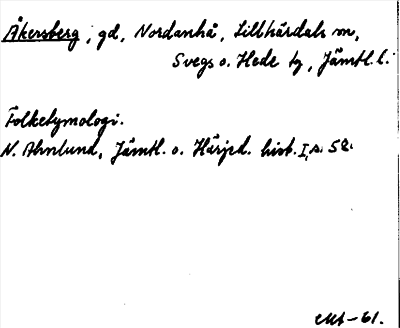 Åkersberg, gd, Nordanhå, Lillhärdals sn,
Svegs o. Hede tg, Jämtl. l.
Folketymologi.
N. Ahnlund, Jämtl. o. Härjed. hist. I, s. 52.
-61.